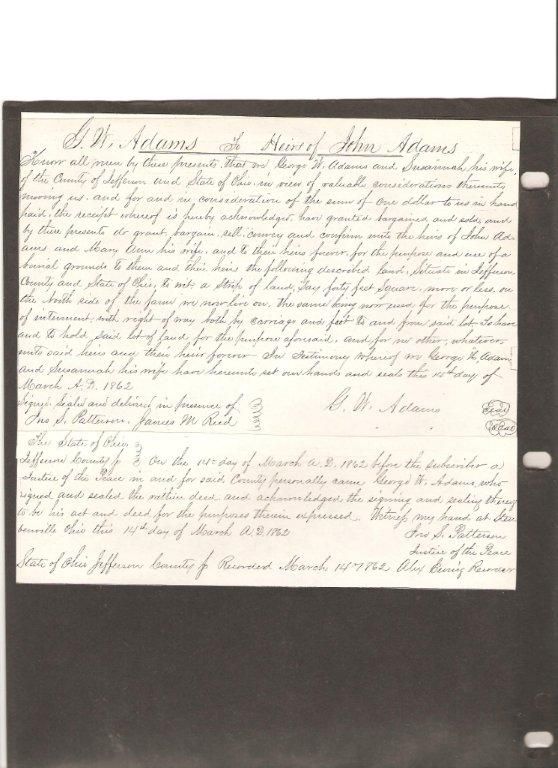 G. W. Adams To Heirs of John Adams
Know all men by these presents, that we George W. Adams and Susannah his wife
of the County of Jefferson and State of Ohio in view of valuable considerations thereunto
moving us, and for and in consideration of the sum of one dollar to us in hand
paid, the receipt whereof is hereby acknowledged, have granted bargained and sold, and
by these presents do grant, bargain, sell, convey and confirm unto the heirs of John Ad-
ams and Mary Ann his wife, and to their heirs forever, for the purpose and use of a
burial grounds to them and their heirs the following described land, Situate in Jefferson
County and State of Ohio, to wit a Strip of land, Say forty feet Square, more or less, on
the North side of the farm we now live on, the same being now used for the purpose
of interment, with right of way both by carriage and feet to and from said lot. To have
and to hold, said lot of land for the purpose aforesaid, and for no other, whatever,
unto said heirs and their heirs forever. In Testimony Whereof we George W. Adams
and Susannah his wife have hereunto set our hands and seals this 14th day of
March A.D. 1862
Signed, Sealed and delivered in presence of
G. W. Adams
Seal
Jno S. Patterson, James M Reed
Seal
The State of Ohio
Jefferson County ss On the 14th day of March A.D. 1862 before the subscriber a
Justice of the Peace in and for said County personally came George W. Adams, who
signed and sealed the within deed and acknowledged the signing and sealing thereof
to be his act and deed for the purposes therein expressed. Witness my hand at Steu
benville Ohio this 14th day of March A.D. 1862
Jno S. Patterson
Justice of the Peace
State of Ohio Jefferson County ss Recorded March 14 1862 Alex Recorder